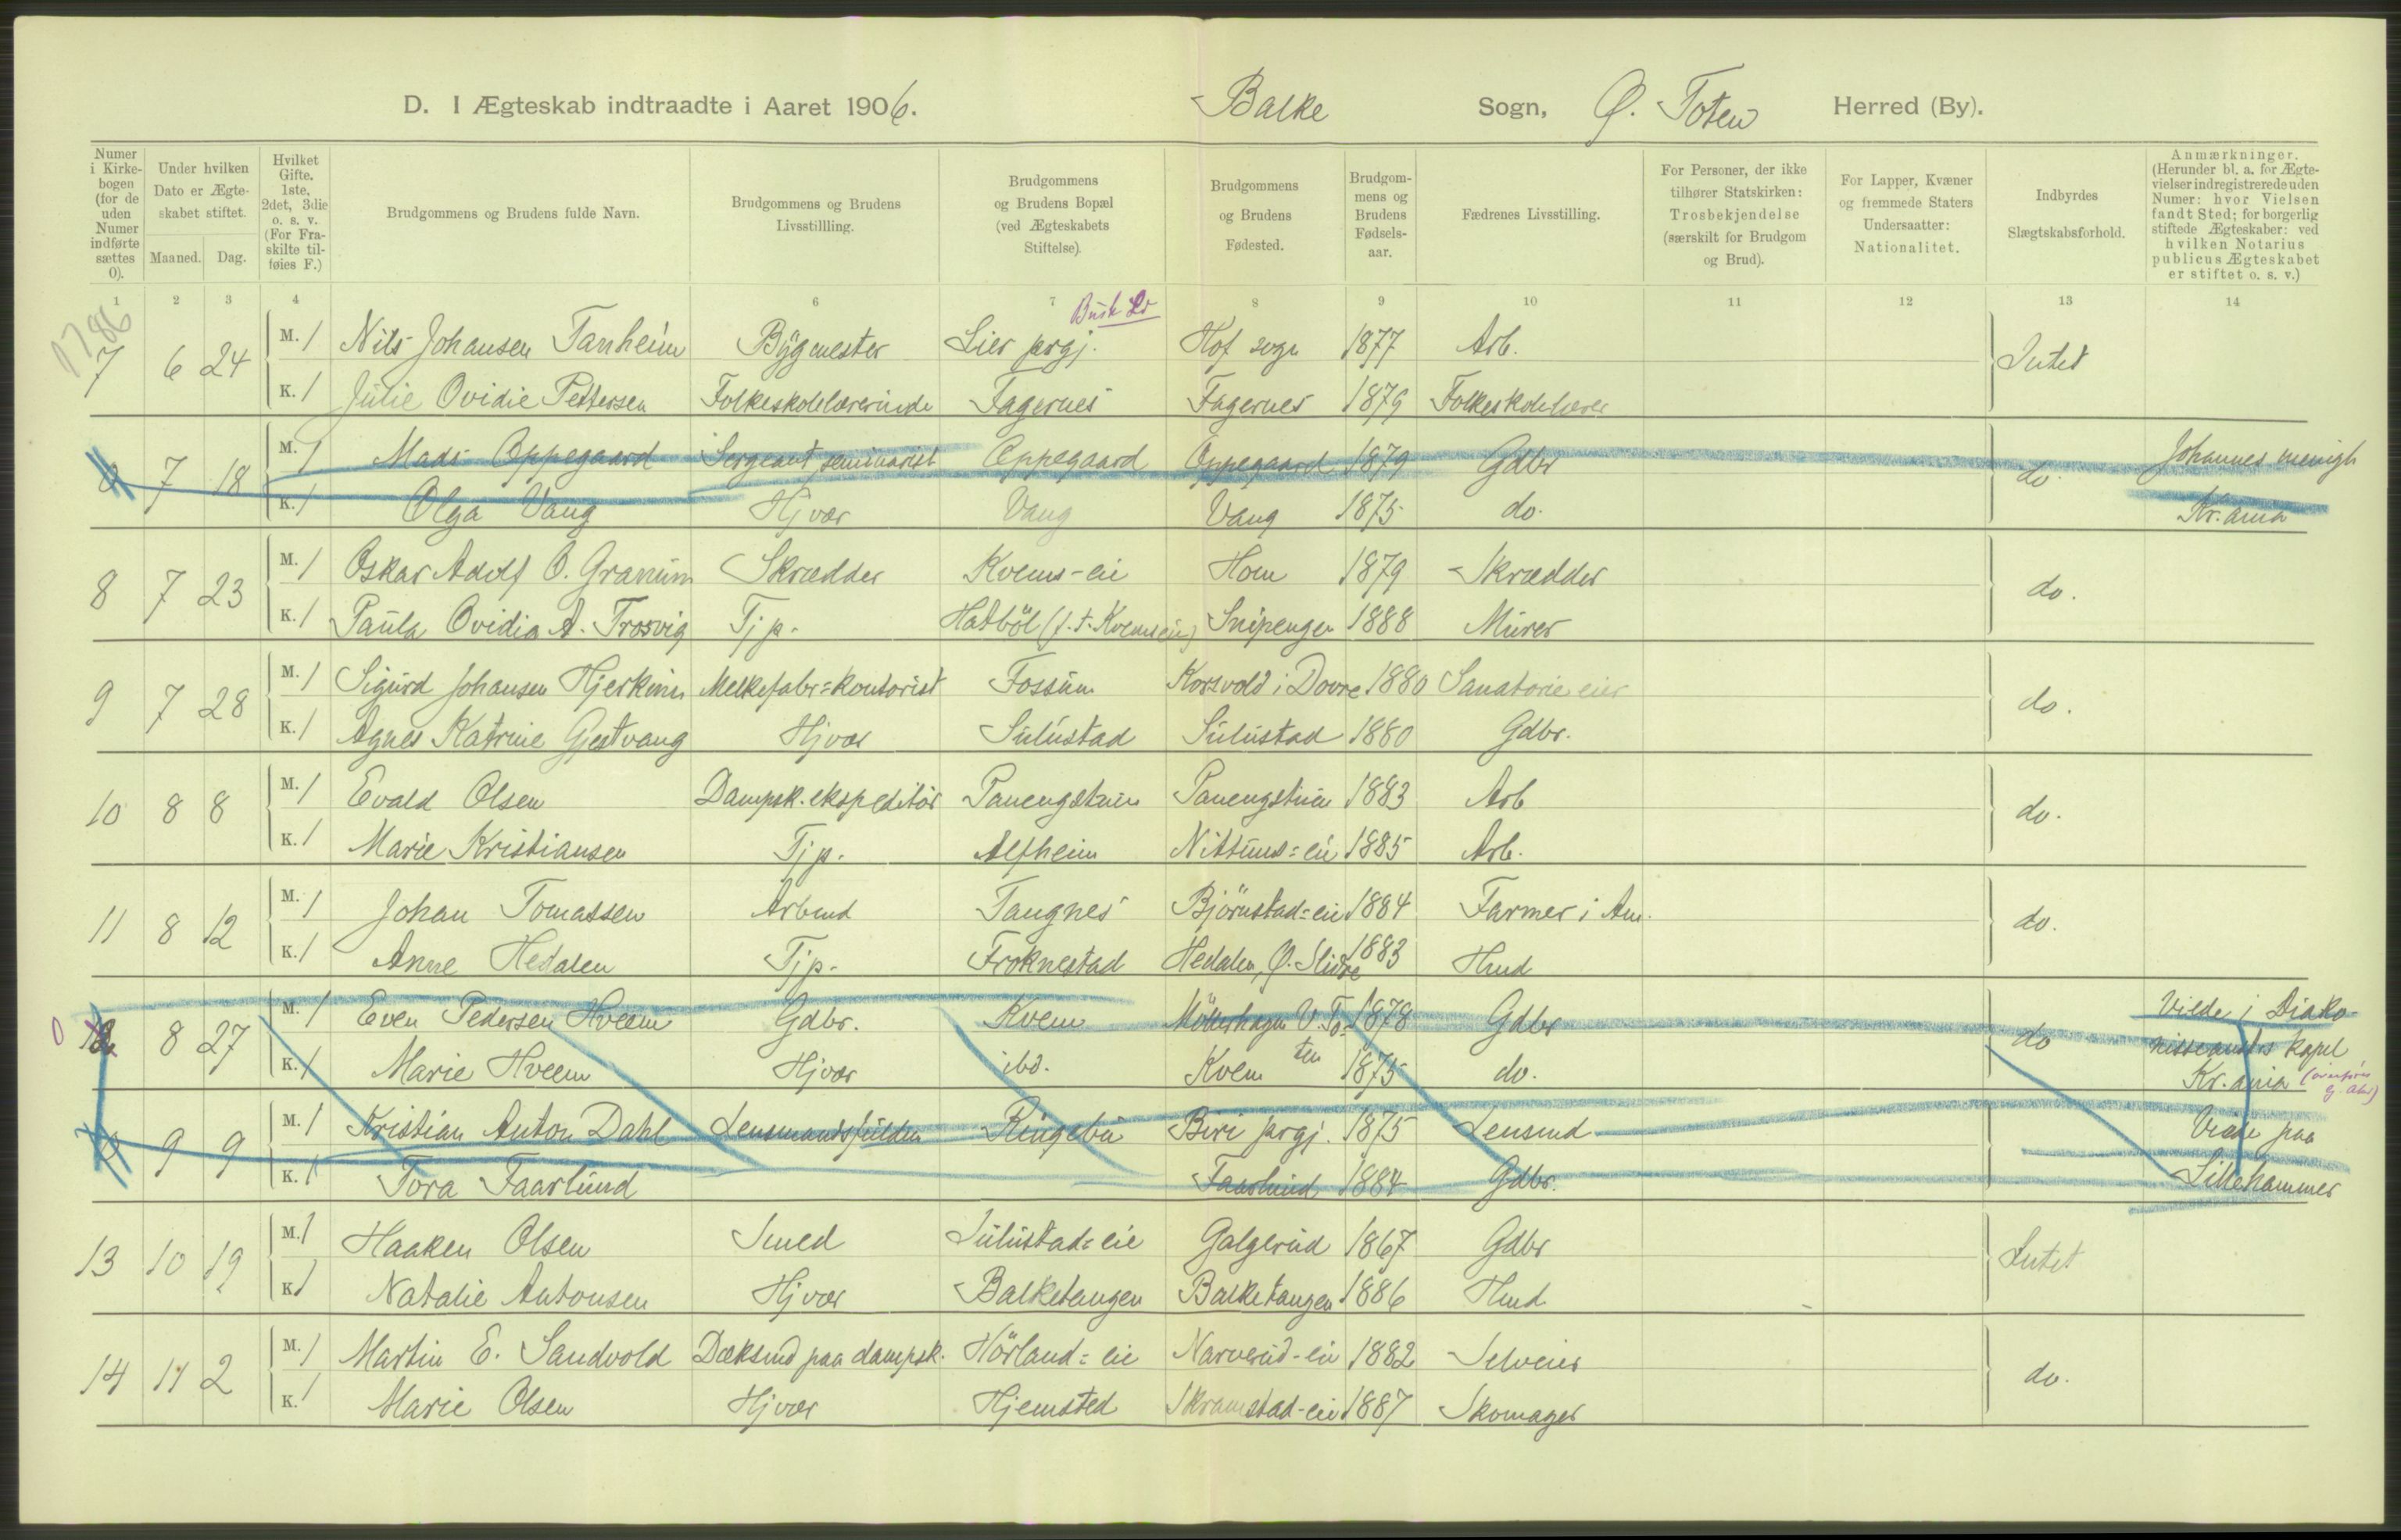 D. I Ægteskab indtraadte i Aaret 1906. Balke Sogn, Ø. Toten Herred (By).
Numer i Kirkebogen (for de uden Numer indførte sættes 0).
Under hvilken Dato er Ægteskabet stiftet.
Maaned. Dag.
Hvilket Gifte. 1ste, 2det, 3die o. s. v. (For Fraskilte tilføies F.)
Brudgommens og Brudens fulde Navn.
Brudgommens og Brudens Livsstillling.
Brudgommens og Brudens Bopæl (ved Ægteskabets Stiftelse).
Brudgommens og Brudens Fødested.
Brudgommens og Brudens Fødselsaar.
Fædrenes Livsstilling.
For Personer, der ikke tilhører Statskirken: Trosbekjendelse (særskilt for Brudgom og Brud).
For Lapper, Kvæner og fremmede Staters Undersaatter: Nationalitet.
Indbyrdes Slægtskabsforhold.
Anmærkninger. (Herunder bl. a. for Ægtevielser indregistrerede uden Numer: hvor Vielsen fandt Sted; for borgerlig stiftede Ægteskaber: ved hvilken Notarius publicus Ægteskabet er stiftet o. s. v.)
1 2 3 4 6 7 8 9 10 11 12 13 14
1786
7 6 24 M. 1 Nils Johansen Tanheim Bygmester Lier prgj. Busk Hof sogn 1877 Arb. Intet
K. 1 Julie Ovidie Pettersen Folkeskolelærerinde Fagernes Fagernes 1879 Folkeskolelærer
0 7 18 M. 1 Mads Oppegaard Sergeant, seminarist Oppegaard Oppegaard 1879 Gdbr do. Johannes menigh
K. 1 Olga Vang Hjvær Vang Vang 1875 do. Kr.ania
8 7 23 M. 1 Oskar Adolf O. Granum Skrædder Kvems-eie Hom 1879 Skrædder do.
K. 1 Paula Ovidia A. Trosvig Tjp. Hatböl (f.t. Kvemseie) Snipengen 1888 Murer
9 7 28 M. 1 Sigurd Johansen Hjerkinn Melkefabr=kontorist Fossum Korsvold i Dovre 1880 Sanatorieeier do.
K. 1 Agnes Katrine Gjestvang Hjvær Sulustad Sulustad 1880 Gdbr.
10 8 8 M. 1 Evald Olsen Dampsk.ekspeditör Panengstuen Panengstuen 1883 Arb do.
K. 1 Marie Kristiansen Tjp. Alfheim Nittums=eie 1885 Arb.
11 8 12 M. 1 Johan Tomassen Arbmd Tangnes Björnstad=eie 1884 Farmer i Am. do.
K. 1 Anne Hedalen Tjp. Froknestad Hedalen, Ø. Slidre 1883 Hmd
0 12 8 27 M. 1 Even Pedersen Hveem Gdbr. Kvem Möllerhagen V. To- 1878 Gdbr do Viede i Diako-
K. 1 Marie Hveem Hjvær ibd. Kvem ten 1875 do. nisseanst.s kapel
Kr.ania
0 9 9 M. 1 Kristian Anton Dahl Lensmandsfuldm Ringebu Biri prgj. 1875 Lensmd Viede paa
K. 1 Tora Faarlund Faarlund 1884 Gdbr. Lillehammer
13 10 19 M. 1 Haaken Olsen Smed Sulustad=eie Galgerud 1867 Gdbr Intet
K 1 Natalie Antonsen Hjvær Balketangen Balketangen 1886 Hmd
14 11 2 M. 1 Martin E. Sandvold Dæksmd paa dampsk. Hörland=eie Narverud-eie 1882 Selveier do.
K. 1 Marie Olsen Hjvær Hjemsted Skramstad-eie 1887 Skomager